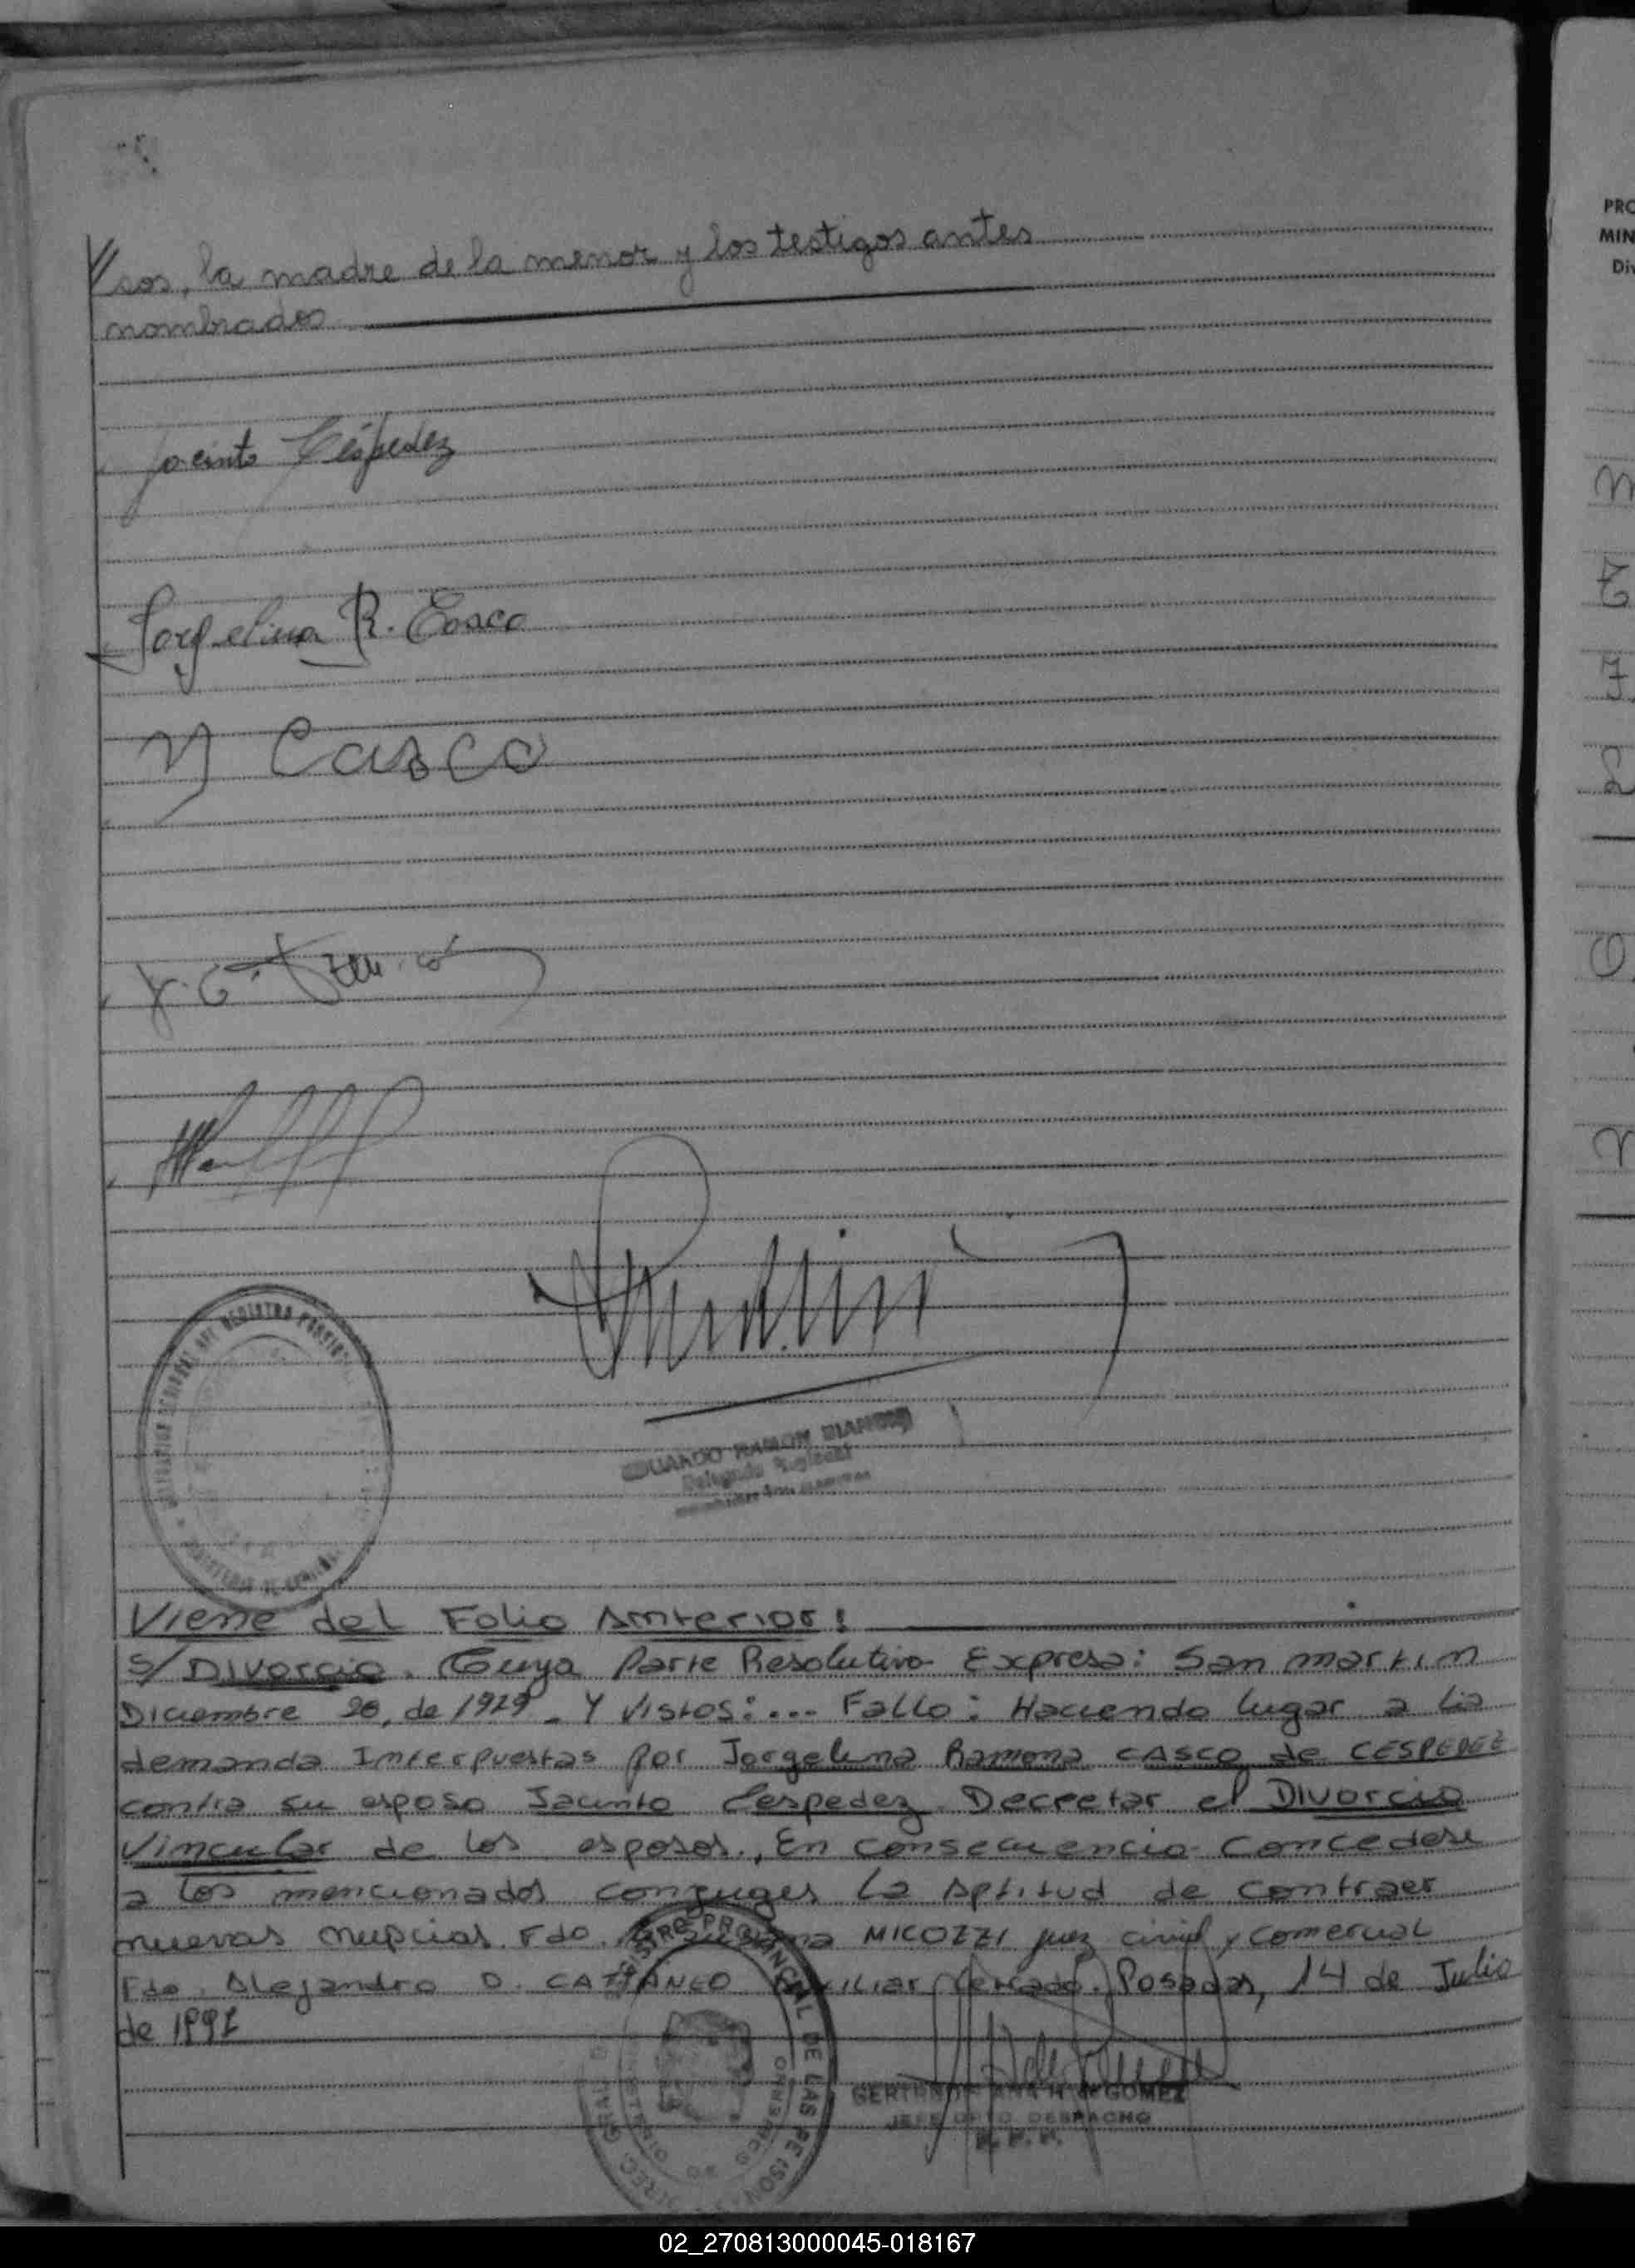 sos, la madre de la menor y los testigos antes
nombrados
Jacinto Céspedez
Jorgelina R. Casco
Casco
EDUARDO RAMON
Viene del Folio Anterior:
s/ Divorcio. Cuya Parte Resolutiva Expresa: San martin
Diciembre 20, de 1989 - Y Vistos:... Fallo: Haciendo lugar a la
demanda Interpuestas por Jorgelina Ramona CASCO de CESPEDEZ
contra su esposo Jacinto Cespedez. Decretar el Divorcio
Vincular de los esposos., En consecuencia Concedese
a los mencionados conjuges la Aptitud de contraer
nuevas nupcias. Fdo. MICOZZI juez civil y Comercial
Fdo. Alejandro D. CATTANEO Auxiliar Letrado. Posadas, 14 de Julio
de 1992
REGISTRO PROVINCIAL DE LAS PERSONAS
GOMEZ
JEFE DPTO DESPACHO
R. P. P.
PRO
MIN
Div
02_270813000045-018167